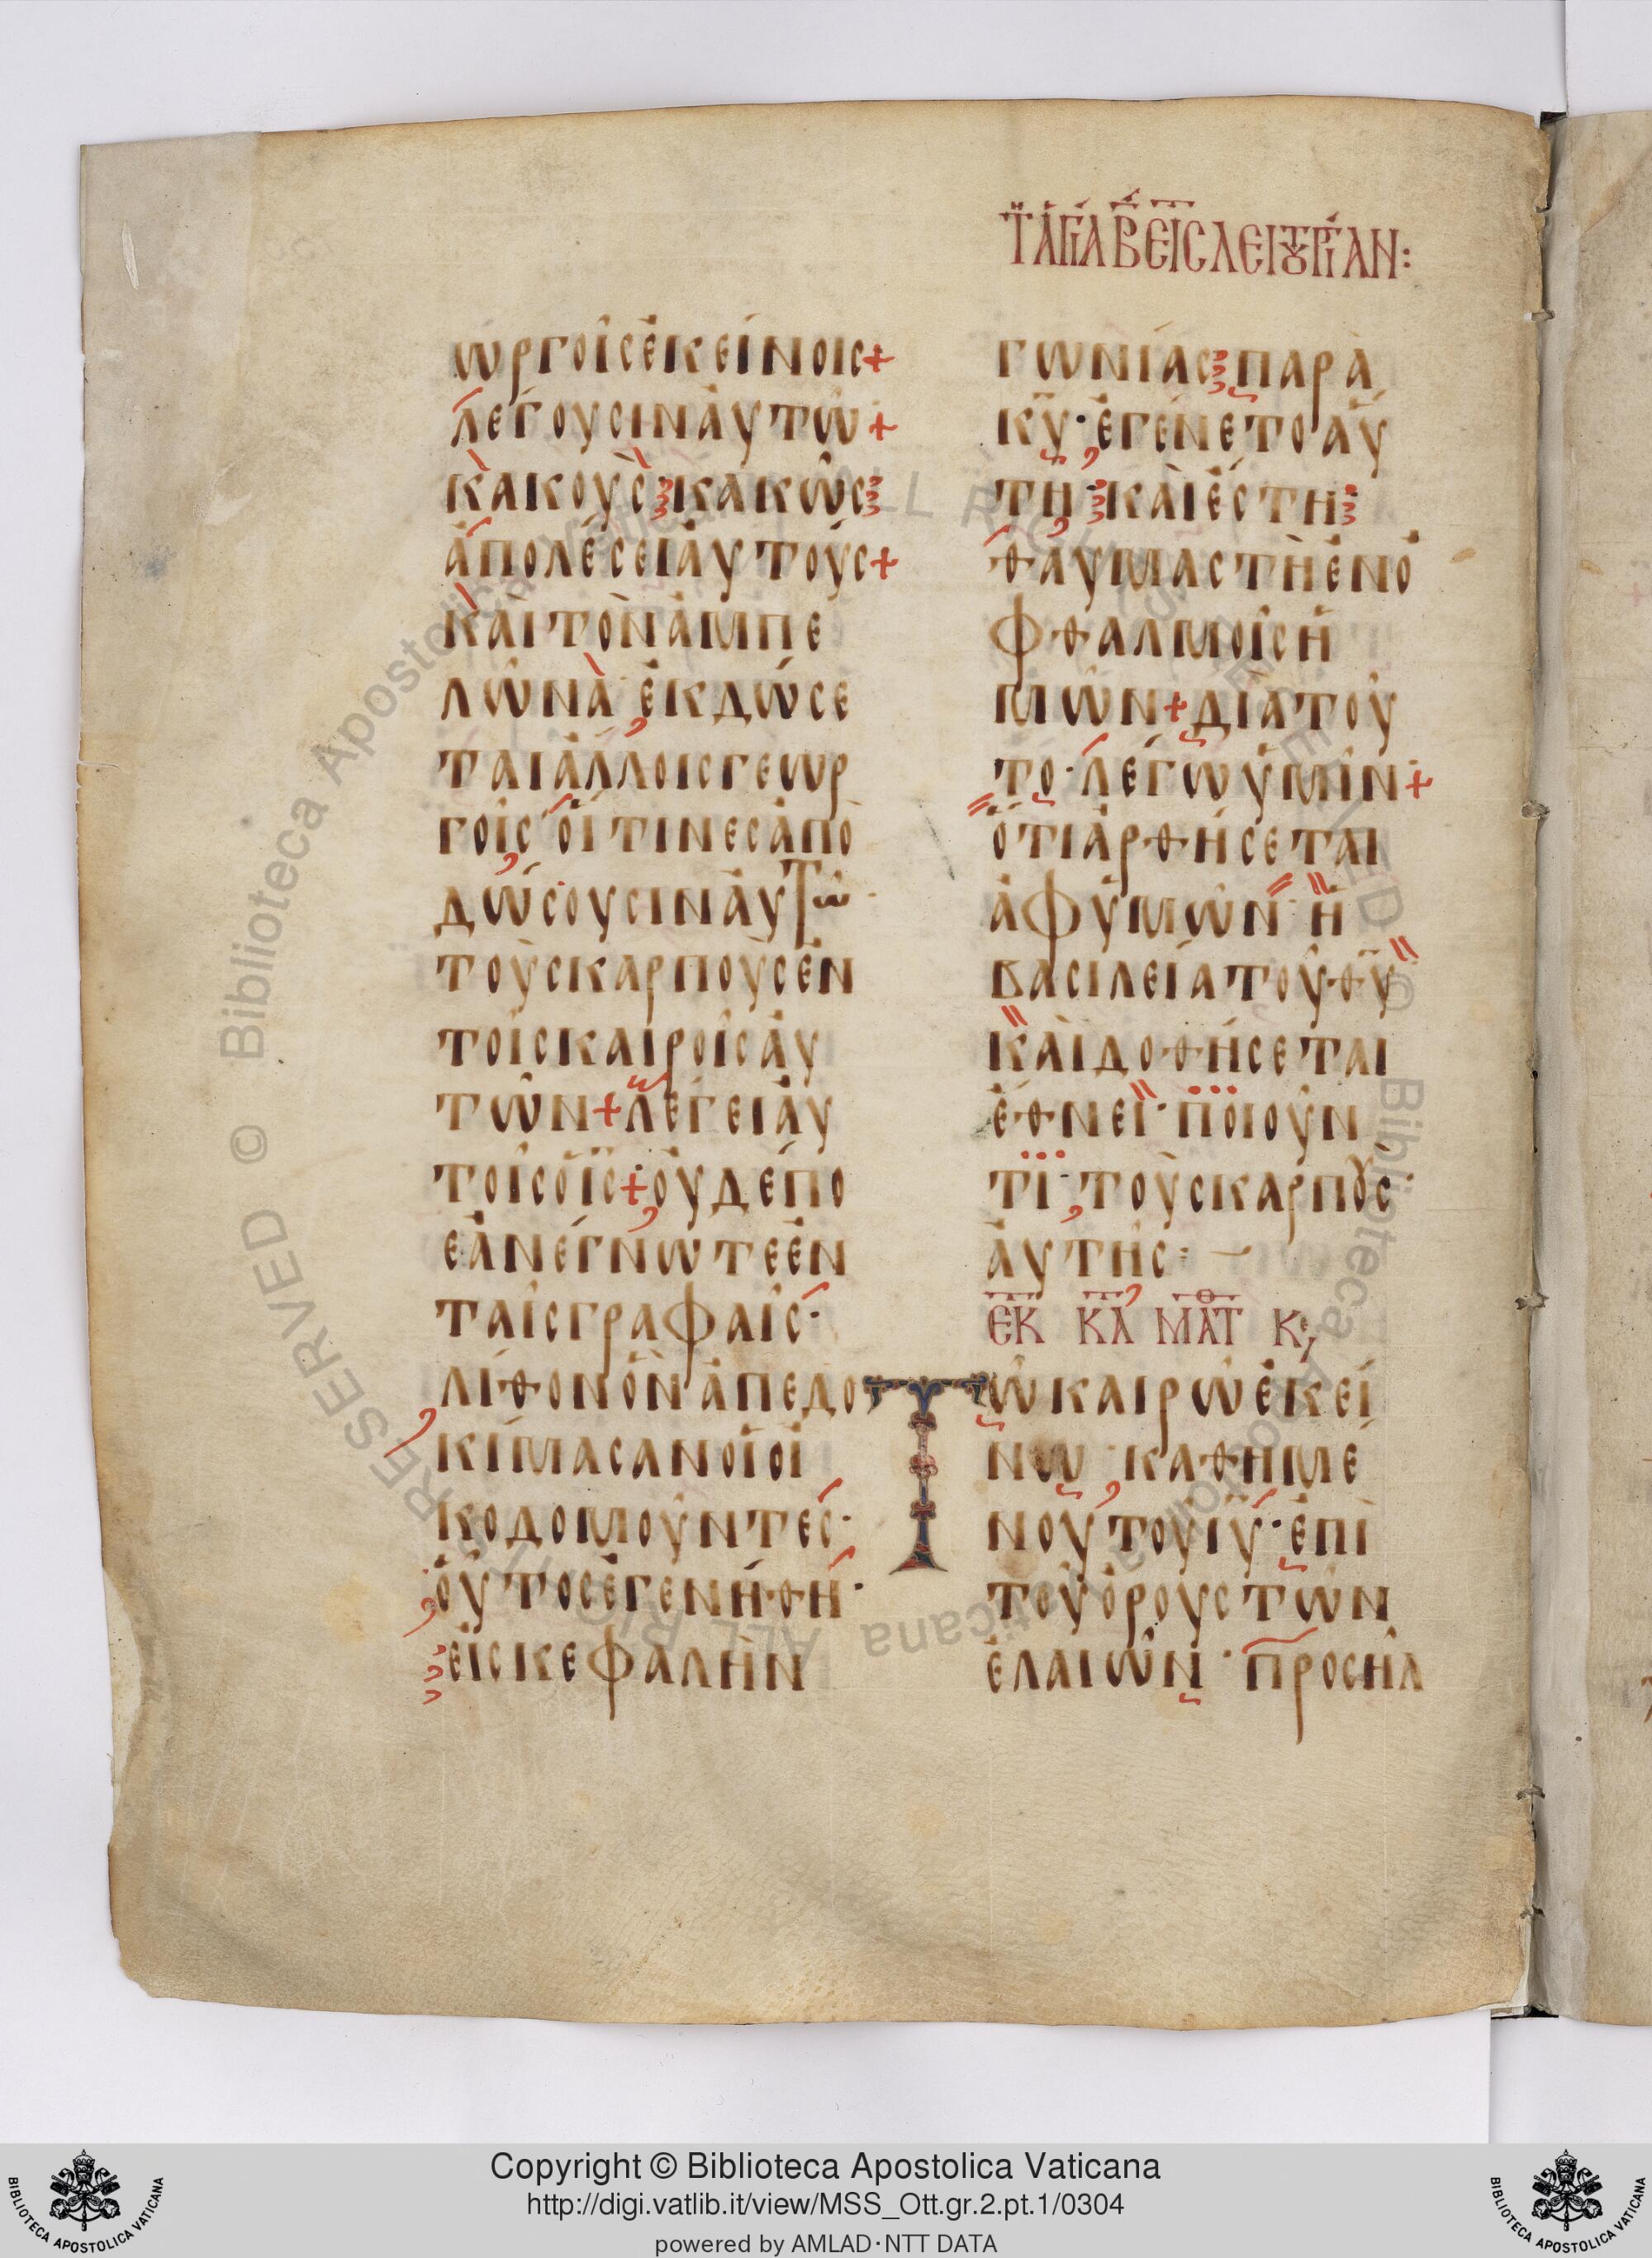 Τ͞Η ΑΓΙΑ Β ΕΙΣ ΛΕΙΤȢΡΓΙΑΝ:
ωργοῖς ἐκείνοις+
λέγουσιν ἀυτῶ+
κακοὺς κακῶς
ἀπολέσει ἀυτούς+
καὶ τὸν ἀμπε
λῶνα ἐκδώσε
ται ἄλλοις γεωρ
γοῖς οἵτινες ἀπο
δώσουσιν ἀυτῶ·
τοὺς καρποὺς ἐν
τοῖς καιροῖς ἀυ
τῶν+λέγει ἀυ
τοῖς ὁ ι͞ς+ὀυδέπο
ε ἀνέγνωτε ἐν
ταῖς γραφαῖς·
λίθον ὃν ἀπεδο
κίμασαν ὁι ὀι
κοδομοῦντες·
ὁῦτος ἐγενήθη·
εἰς κεφαλὴν
γωνίας παρὰ
κ͞υ· ἐγένετο ἁύ
τη· καὶ ἔστη
θαυμαστὴ ἐν ὀ
φθαλμοῖς ἡ
μῶν+διατοῦ
το· λέγω ὑμῖν+
ὅτι ἀρθήσεται
ἀφ ὑμῶν· ἡ
βασιλεία τοῦ θ͞υ
καὶ δοθήσεται
ἔθνει· ποιοῦν
τι· τοὺς καρπȣς·
ἀυτῆς:
ΕΚ ΚΑ ΜΑΤΘ Κε,
Τῶ καιρῶ ἐκεί
νω καθημέ
νου τοῦ ι͞υ· ἐπὶ
τοῦ ὄρους τῶν
ἐλαιῶν· προσῆλ
© Biblioteca Apostolica Vaticana ALL RIGHTS RESERVED © Biblioteca Apostolica Vaticana ALL RIGHTS RESERVED
BIBLIOTECA APOSTOLICA VATICANA
Copyright © Biblioteca Apostolica Vaticana
http://digi.vatlib.it/view/MSS_Ott.gr.2.pt.1/0304
powered by AMLAD·NTT DATA
BIBLIOTECA APOSTOLICA VATICANA